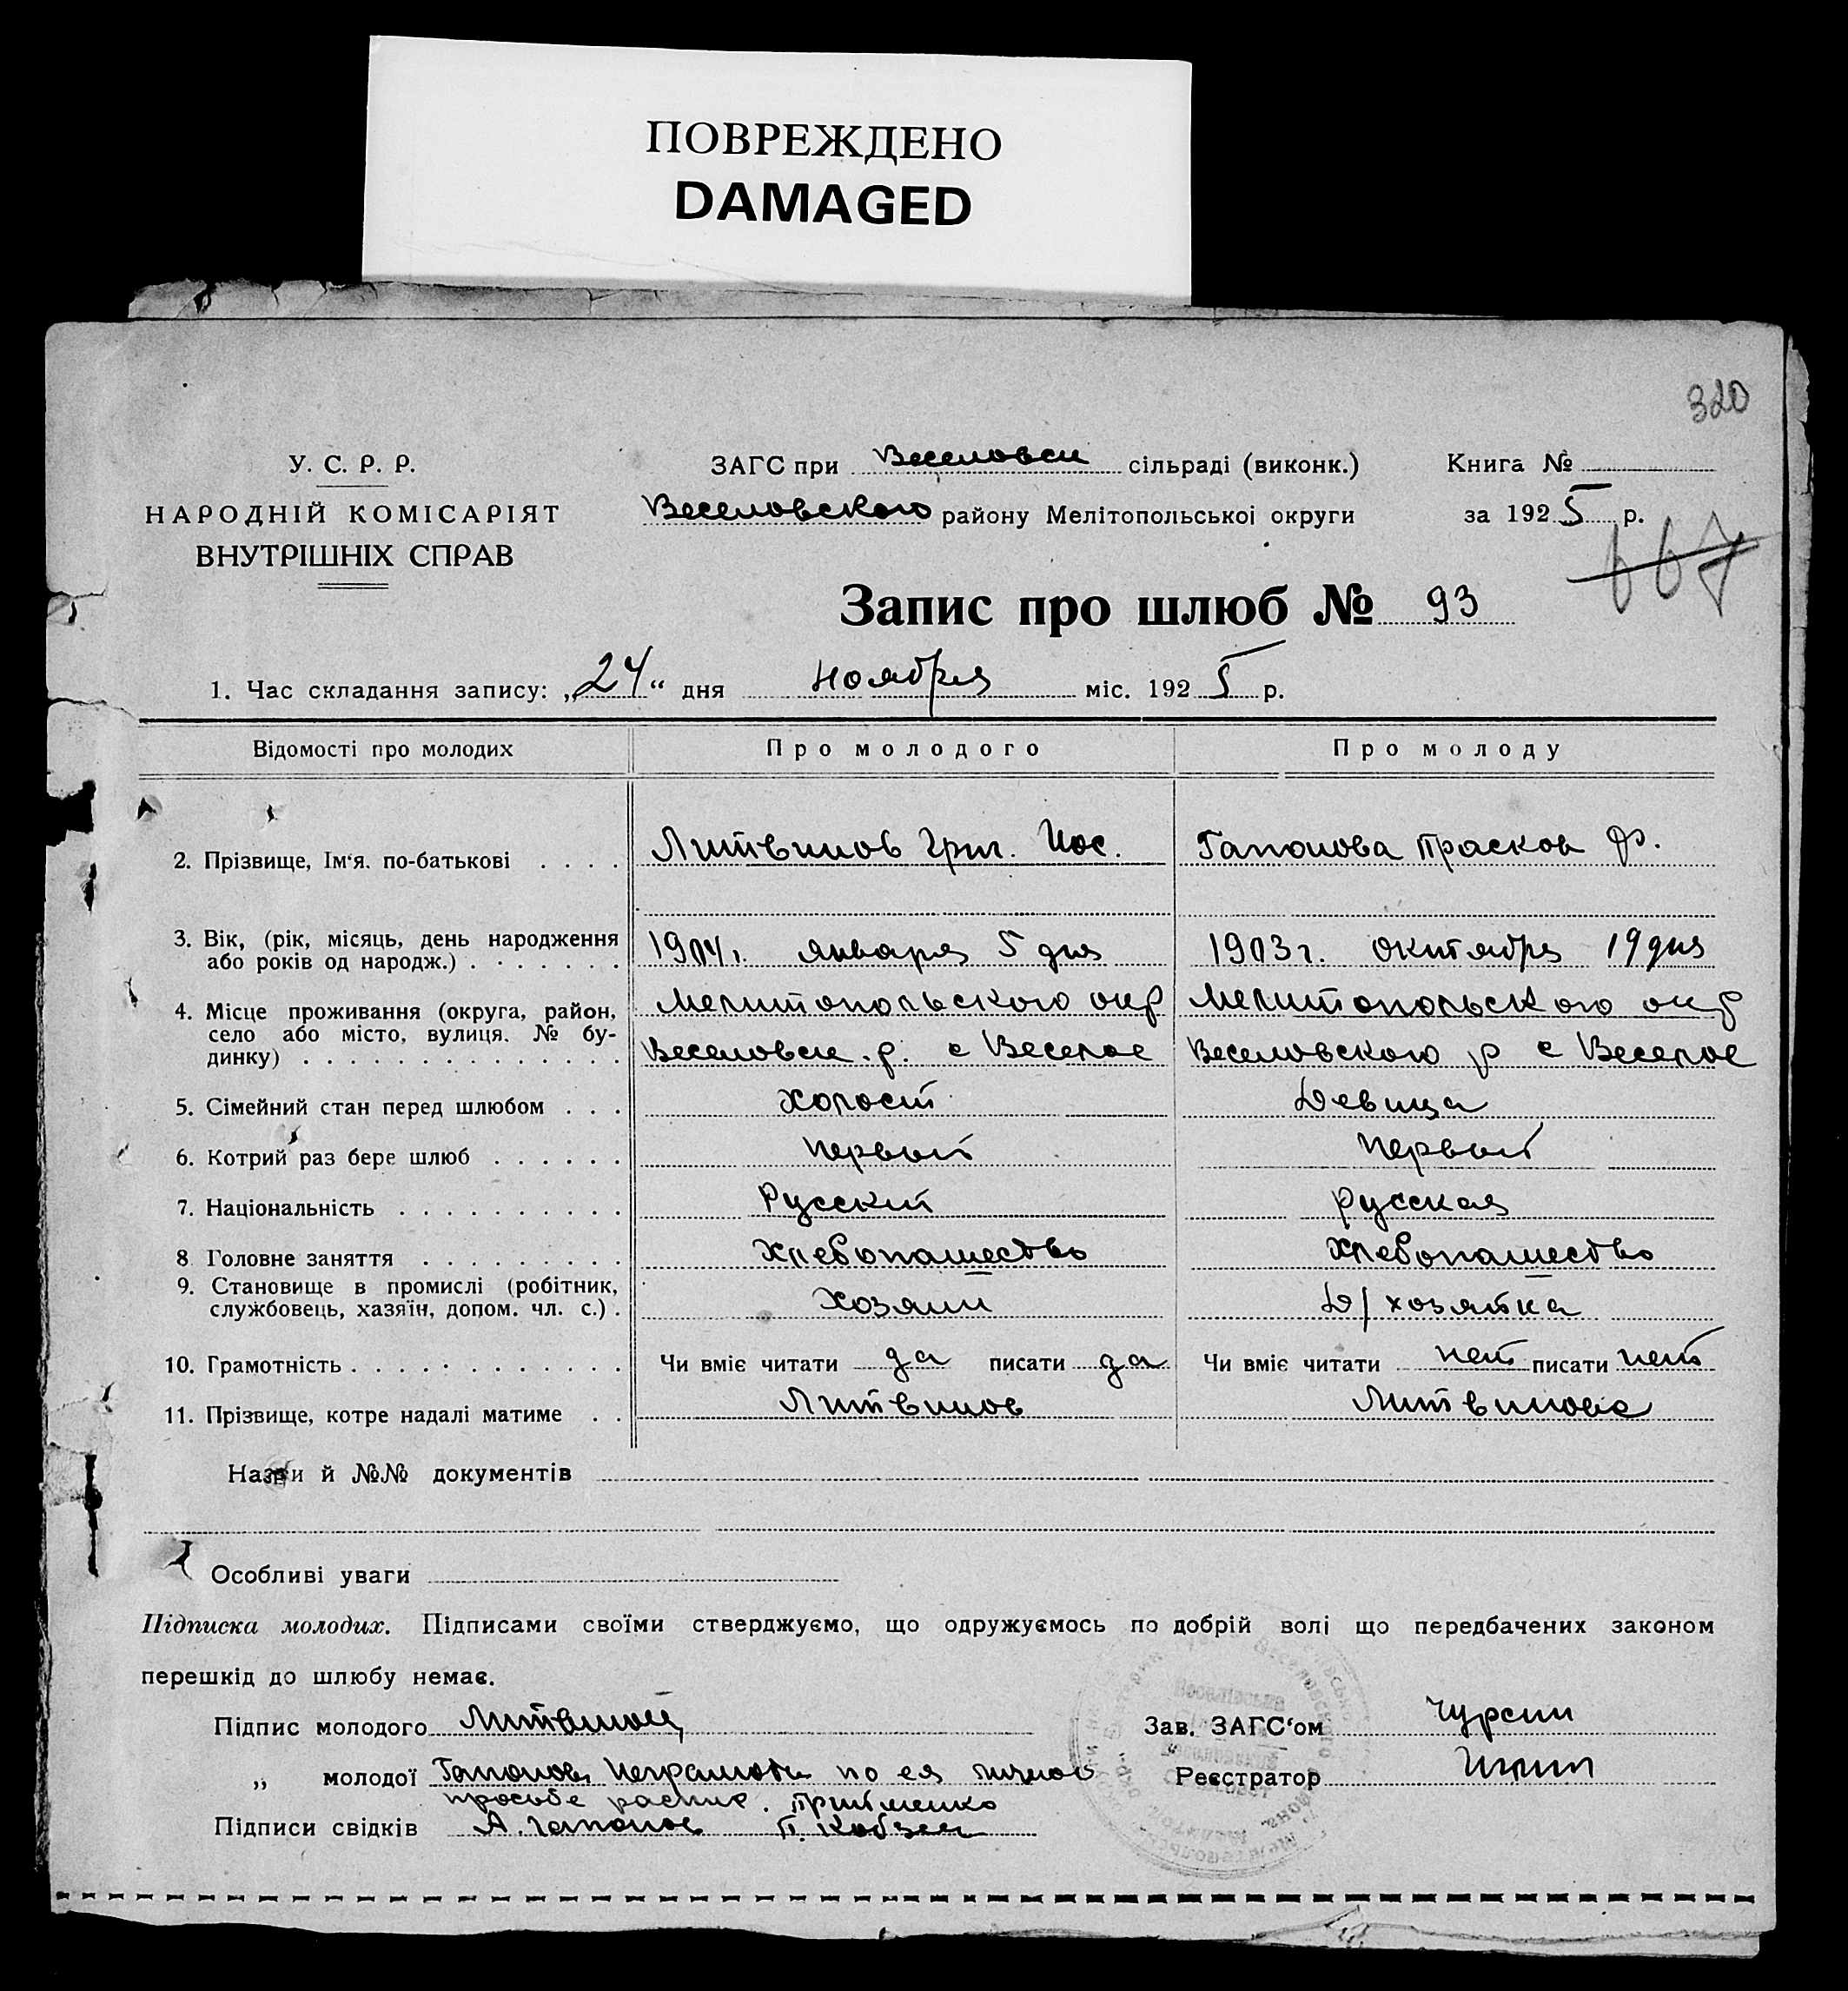 ПОВРЕЖДЕНО
DAMAGED
320
У. С. Р. Р.
НАРОДНІЙ КОМІСАРІЯТ
ВНУТРІШНІХ СПРАВ
ЗАГС при Веселовск сільраді (виконк.) Книга №
Веселовского району Мелітопольської округи за 1925 р.
667
Запис про шлюб № 93
1. Час складання запису: „24“ дня ноября міс. 1925 р.
Відомості про молодих Про молодого Про молоду
2. Прізвище, Ім'я. по-батькові Литвинов Григ. Иос. Гапонова Прасков Ф.
3. Вік, (рік, місяць, день народження
або років од народж.) 1904 г. января 5 дня 1903 г. октября 19 дня
4. Місце проживання (округа, район, Мелитопольского окр Мелитопольского окр
село або місто, вулиця. № бу-
динку) Веселовск. р. с Веселое Веселовского р с Веселое
5. Сімейний стан перед шлюбом Холост Девица
6. Котрий раз бере шлюб первый первый
7. Національність Русский русская
8 Головне заняття Хлебопашество Хлебопашество
9. Становище в промислі (робітник,
службовець, хазяїн, допом. чл. с.) Хозяин Д/хозяйка
10. Грамотність Чи вміє читати да писати да Чи вміє читати нет писати нет
11. Прізвище, котре надалі матиме Литвинов Литвинова
Назви й №№ документів
Особливі уваги
Підписка молодих. Підписами своїми стверджуємо, що одружуємось по добрій волі що передбачених законом
перешкід до шлюбу немає.
Підпис молодого Литвинов Зав. ЗАГС'ом Чурсин
„ молодої Гапонова неграмотн по ея личной Реєстратор
просьбе распис.
Підписи свідків А. Гапонов П.